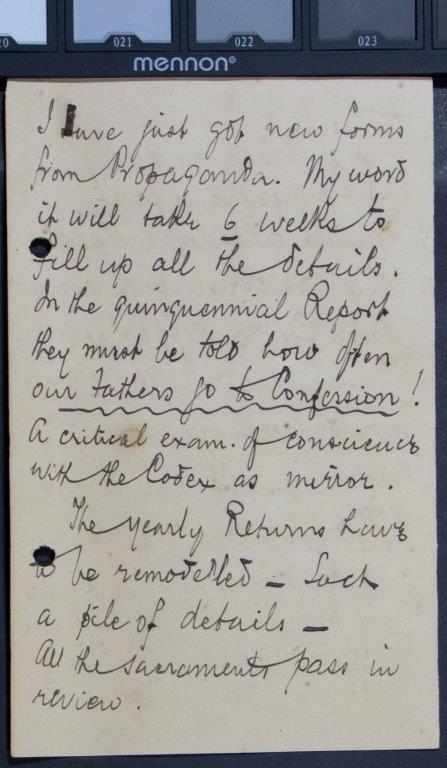 20
021
022
023
mennon®
I have just got new forms
from Propaganda. My word
it will take 6 weeks to
fill up all the details.
In the quinquennial Report
they must be told how often
our Fathers go to Confession!
A critical exam. of conscience
with the Codex as mirror.
The yearly Returns have
to be remodelled – Such
a pile of details –
All the sacraments pass in
review.